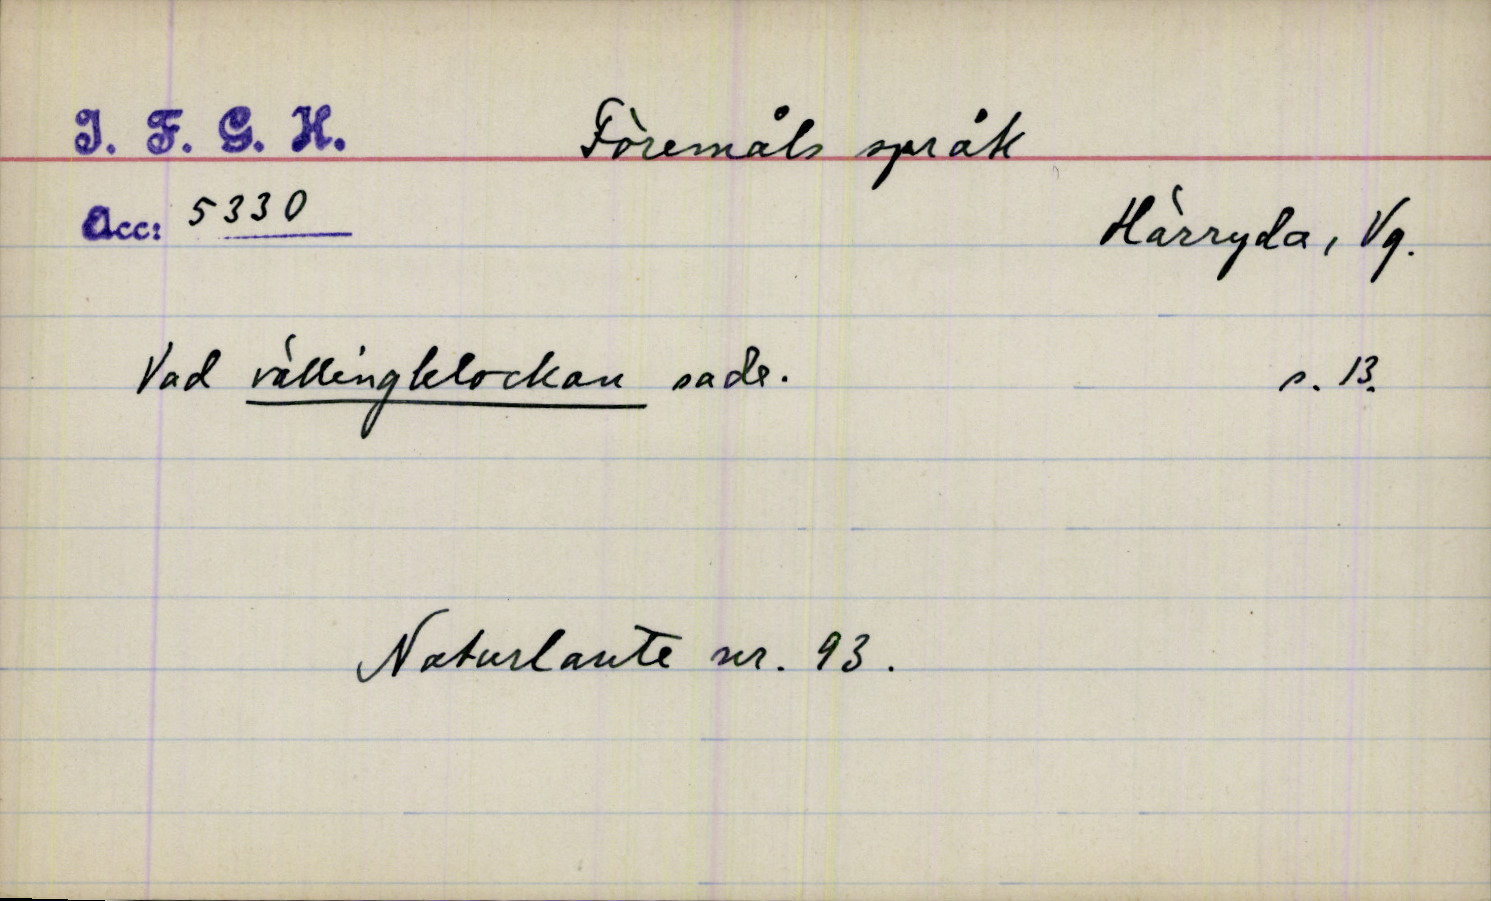 I. F. G. H. Föremåls språk
Acc: 5330 Härryda, Vg.
Vad vällingklockan sade. s. 13.
Naturlaute nr. 93.